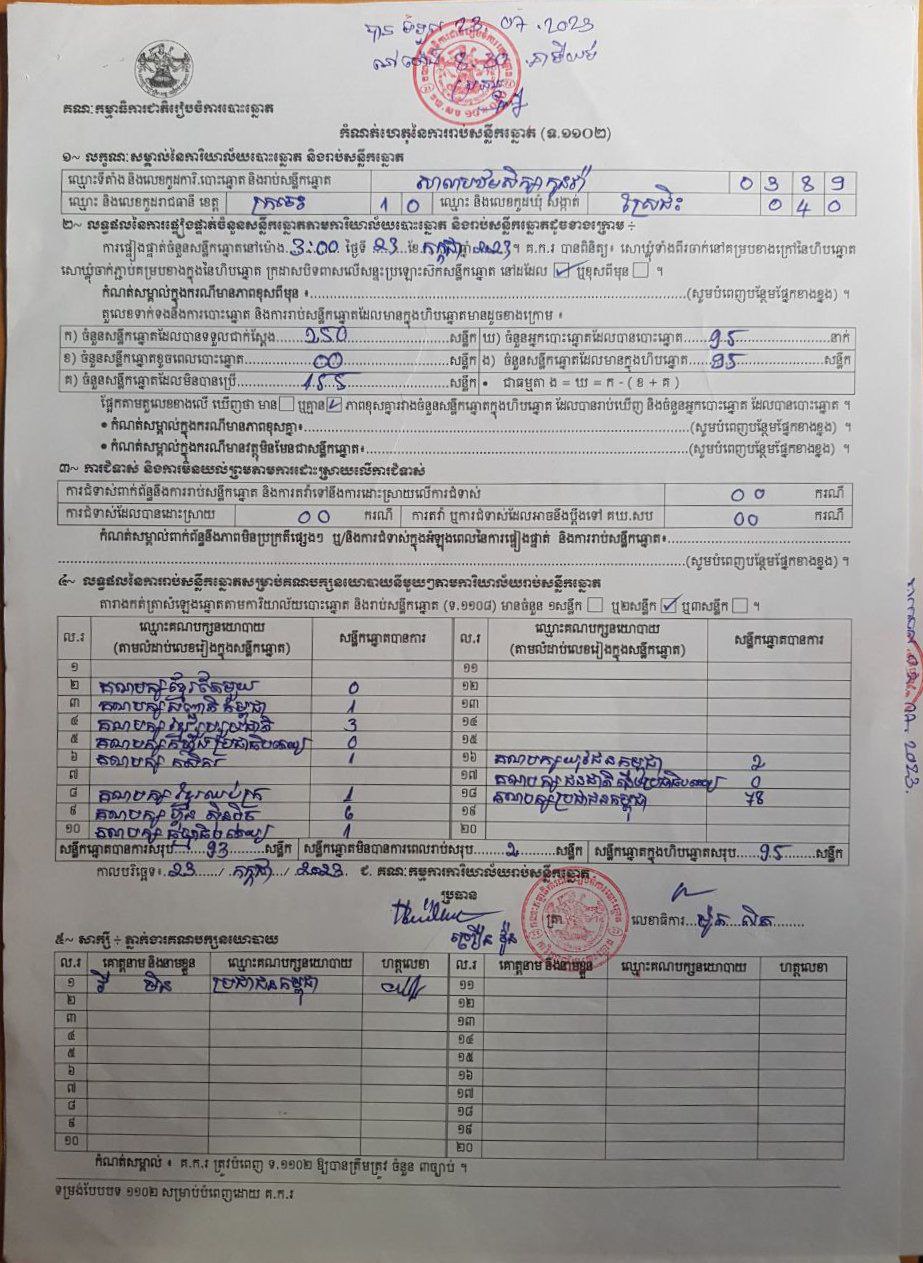 បាន ទទួល 23.07.2023
គណៈកម្មាធិការជាតិរៀបចំការបោះឆ្នោត
កំណត់ហេតុនៃការរាប់សន្លឹកឆ្នោត (ទ.១១០២)
១~ លក្ខណៈសម្គាល់នៃការិយាល័យបោះឆ្នោត និងរាប់សន្លឹកឆ្នោត
ឈ្មោះទីតាំង និងលេខកូដការិ.បោះឆ្នោត និងរាប់សន្លឹកឆ្នោត សាលាបឋមសិក្សា 0 3 8 9
ឈ្មោះ និងលេខកូដរាជធានី ខេត្ត ក្រចេះ 1 0 ឈ្មោះ និងលេខកូដឃុំ សង្កាត់ ស្រែជិះ 0 4 0
២~ លទ្ធផលនៃការផ្ទៀងផ្ទាត់ចំនួនសន្លឹកឆ្នោតតាមការិយាល័យបោះឆ្នោត និងរាប់សន្លឹកឆ្នោតដូចខាងក្រោម ÷
ការផ្ទៀងផ្ទាត់ចំនួនសន្លឹកឆ្នោតនៅម៉ោង 3:00 ថ្ងៃទី 23 ខែ កក្កដា ឆ្នាំ 2023។ គ.ក.រ បានពិនិត្យ៖ សោឃ្លុំទាំងពីរចាក់នៅគម្របខាងក្រៅនៃហិបឆ្នោត
សោឃ្លុំចាក់ភ្ជាប់គម្របខាងក្នុងនៃហិបឆ្នោត ក្រដាសបិទពាសលើសន្ទះប្រឡោះស៊កសន្លឹកឆ្នោត នៅដដែល ☑ ឬខុសពីមុន ☐ ។
កំណត់សម្គាល់ក្នុងករណីមានភាពខុសពីមុន ៖ (សូមបំពេញបន្ថែមផ្នែកខាងខ្នង) ។
តួលេខទាក់ទងនឹងការបោះឆ្នោត និងការរាប់សន្លឹកឆ្នោតដែលមានក្នុងហិបឆ្នោតមានដូចខាងក្រោម ៖
ក) ចំនួនសន្លឹកឆ្នោតដែលបានទទួលជាក់ស្តែង 250 សន្លឹក ឃ) ចំនួនអ្នកបោះឆ្នោតដែលបានបោះឆ្នោត 95 នាក់
ខ) ចំនួនសន្លឹកឆ្នោតខូចពេលបោះឆ្នោត 00 សន្លឹក ង) ចំនួនសន្លឹកឆ្នោតដែលមានក្នុងហិបឆ្នោត 95 សន្លឹក
គ) ចំនួនសន្លឹកឆ្នោតដែលមិនបានប្រើ 155 សន្លឹក • ជាធម្មតា ង = ឃ = ក - ( ខ + គ )
ផ្អែកតាមតួលេខខាងលើ ឃើញថា មាន ☐ ឬគ្មាន ☑ ភាពខុសគ្នារវាងចំនួនសន្លឹកឆ្នោតក្នុងហិបឆ្នោត ដែលបានរាប់ឃើញ និងចំនួនអ្នកបោះឆ្នោត ដែលបានបោះឆ្នោត ។
• កំណត់សម្គាល់ក្នុងករណីមានភាពខុសគ្នា៖ (សូមបំពេញបន្ថែមផ្នែកខាងខ្នង) ។
• កំណត់សម្គាល់ក្នុងករណីមានវត្ថុមិនមែនជាសន្លឹកឆ្នោត៖ (សូមបំពេញបន្ថែមផ្នែកខាងខ្នង) ។
៣~ ការជំទាស់ និងការមិនយល់ព្រមតាមការដោះស្រាយលើការជំទាស់
ការជំទាស់ពាក់ព័ន្ធនឹងការរាប់សន្លឹកឆ្នោត និងការតវ៉ាទៅនឹងការដោះស្រាយលើការជំទាស់ 00 ករណី
ការជំទាស់ដែលបានដោះស្រាយ 00 ករណី ការតវ៉ា ឬការជំទាស់ដែលអាចនឹងប្តឹងទៅ គឃ.សប 00 ករណី
កំណត់សម្គាល់ពាក់ព័ន្ធនឹងភាពមិនប្រក្រតីផ្សេងៗ ឬ/និងការជំទាស់ក្នុងអំឡុងពេលនៃការផ្ទៀងផ្ទាត់ និងការរាប់សន្លឹកឆ្នោត៖
(សូមបំពេញបន្ថែមផ្នែកខាងខ្នង) ។
៤~ លទ្ធផលនៃការរាប់សន្លឹកឆ្នោតសម្រាប់គណបក្សនយោបាយនីមួយៗតាមការិយាល័យរាប់សន្លឹកឆ្នោត
តារាងកត់ត្រាសំឡេងឆ្នោតតាមការិយាល័យបោះឆ្នោត និងរាប់សន្លឹកឆ្នោត (ទ.១១០៨) មានចំនួន ១សន្លឹក ☐ ឬ២សន្លឹក ☑ ឬ៣សន្លឹក ☐ ។
ល.រ ឈ្មោះគណបក្សនយោបាយ (តាមលំដាប់លេខរៀងក្នុងសន្លឹកឆ្នោត) សន្លឹកឆ្នោតបានការ ល.រ ឈ្មោះគណបក្សនយោបាយ (តាមលំដាប់លេខរៀងក្នុងសន្លឹកឆ្នោត) សន្លឹកឆ្នោតបានការ
១ ១១
២ គណបក្សខ្មែរតែមួយ 0 ១២
៣ គណបក្ស សញ្ជាតិកម្ពុជា 1 ១៣
៤ គណបក្ស ខ្មែររួបរួមជាតិ 3 ១៤
៥ គណបក្ស សំបុកឃ្មុំប្រជាធិបតេយ្យ 0 ១៥
៦ គណបក្ស កសិករ 1 ១៦ គណបក្ស យុវជនកម្ពុជា 2
៧ ១៧ គណបក្ស ជនជាតិដើមប្រជាធិបតេយ្យ 0
៨ គណបក្ស ខ្មែរឈប់ក្រ 1 ១៨ គណបក្សប្រជាជនកម្ពុជា 78
៩ គណបក្ស ហ្វ៊ុនស៊ិនប៉ិច 6 ១៩
១០ គណបក្ស ធម្មាធិបតេយ្យ 1 ២០
សន្លឹកឆ្នោតបានការសរុប 93 សន្លឹក សន្លឹកឆ្នោតមិនបានការពេលរាប់សរុប 2 សន្លឹក សន្លឹកឆ្នោតក្នុងហិបឆ្នោតសរុប 95 សន្លឹក
កាលបរិច្ឆេទ៖ 23 / កក្កដា / 2023 ជ. គណៈកម្មការការិយាល័យរាប់សន្លឹកឆ្នោត
ប្រធាន
ត្រា លេខាធិការ
៥~ សាក្សី ÷ ភ្នាក់ងារគណបក្សនយោបាយ
ល.រ គោត្តនាម និងនាមខ្លួន ឈ្មោះគណបក្សនយោបាយ ហត្ថលេខា ល.រ គោត្តនាម និងនាមខ្លួន ឈ្មោះគណបក្សនយោបាយ ហត្ថលេខា
១ ប្រជាជនកម្ពុជា ១១
២ ១២
៣ ១៣
៤ ១៤
៥ ១៥
៦ ១៦
៧ ១៧
៨ ១៨
៩ ១៩
១០ ២០
កំណត់សម្គាល់ ៖ គ.ក.រ ត្រូវបំពេញ ទ.១១០២ ឱ្យបានត្រឹមត្រូវ ចំនួន ៣ច្បាប់ ។
ទម្រង់បែបបទ ១១០២ សម្រាប់បំពេញដោយ គ.ក.រ